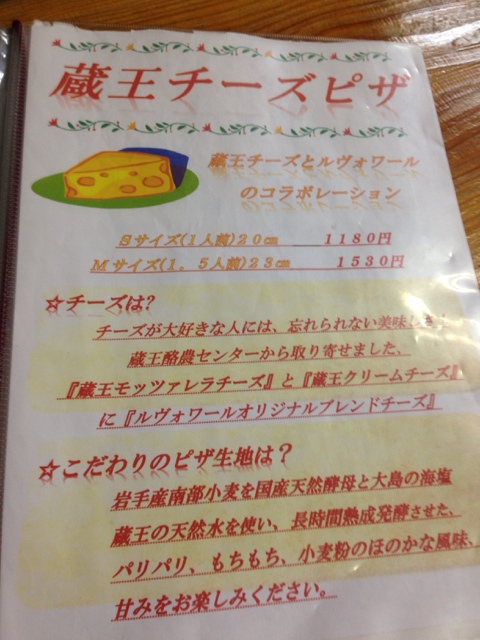 蔵王チーズピザ
蔵王チーズとルヴォワール
のコラボレーション
Sサイズ(1人前)20㎝ 1180円
Mサイズ(1.5人前)23㎝ 1530円
☆チーズは?
チーズが大好きな人には、忘れられない美味しさ!
蔵王酪農センターから取り寄せました、
『蔵王モッツァレラチーズ』と『蔵王クリームチーズ』
に『ルヴォワールオリジナルブレンドチーズ』
☆こだわりのピザ生地は?
岩手産南部小麦を国産天然酵母と大島の海塩
蔵王の天然水を使い、長時間熟成発酵させた、
パリパリ、もちもち、小麦粉のほのかな風味、
甘みをお楽しみください。